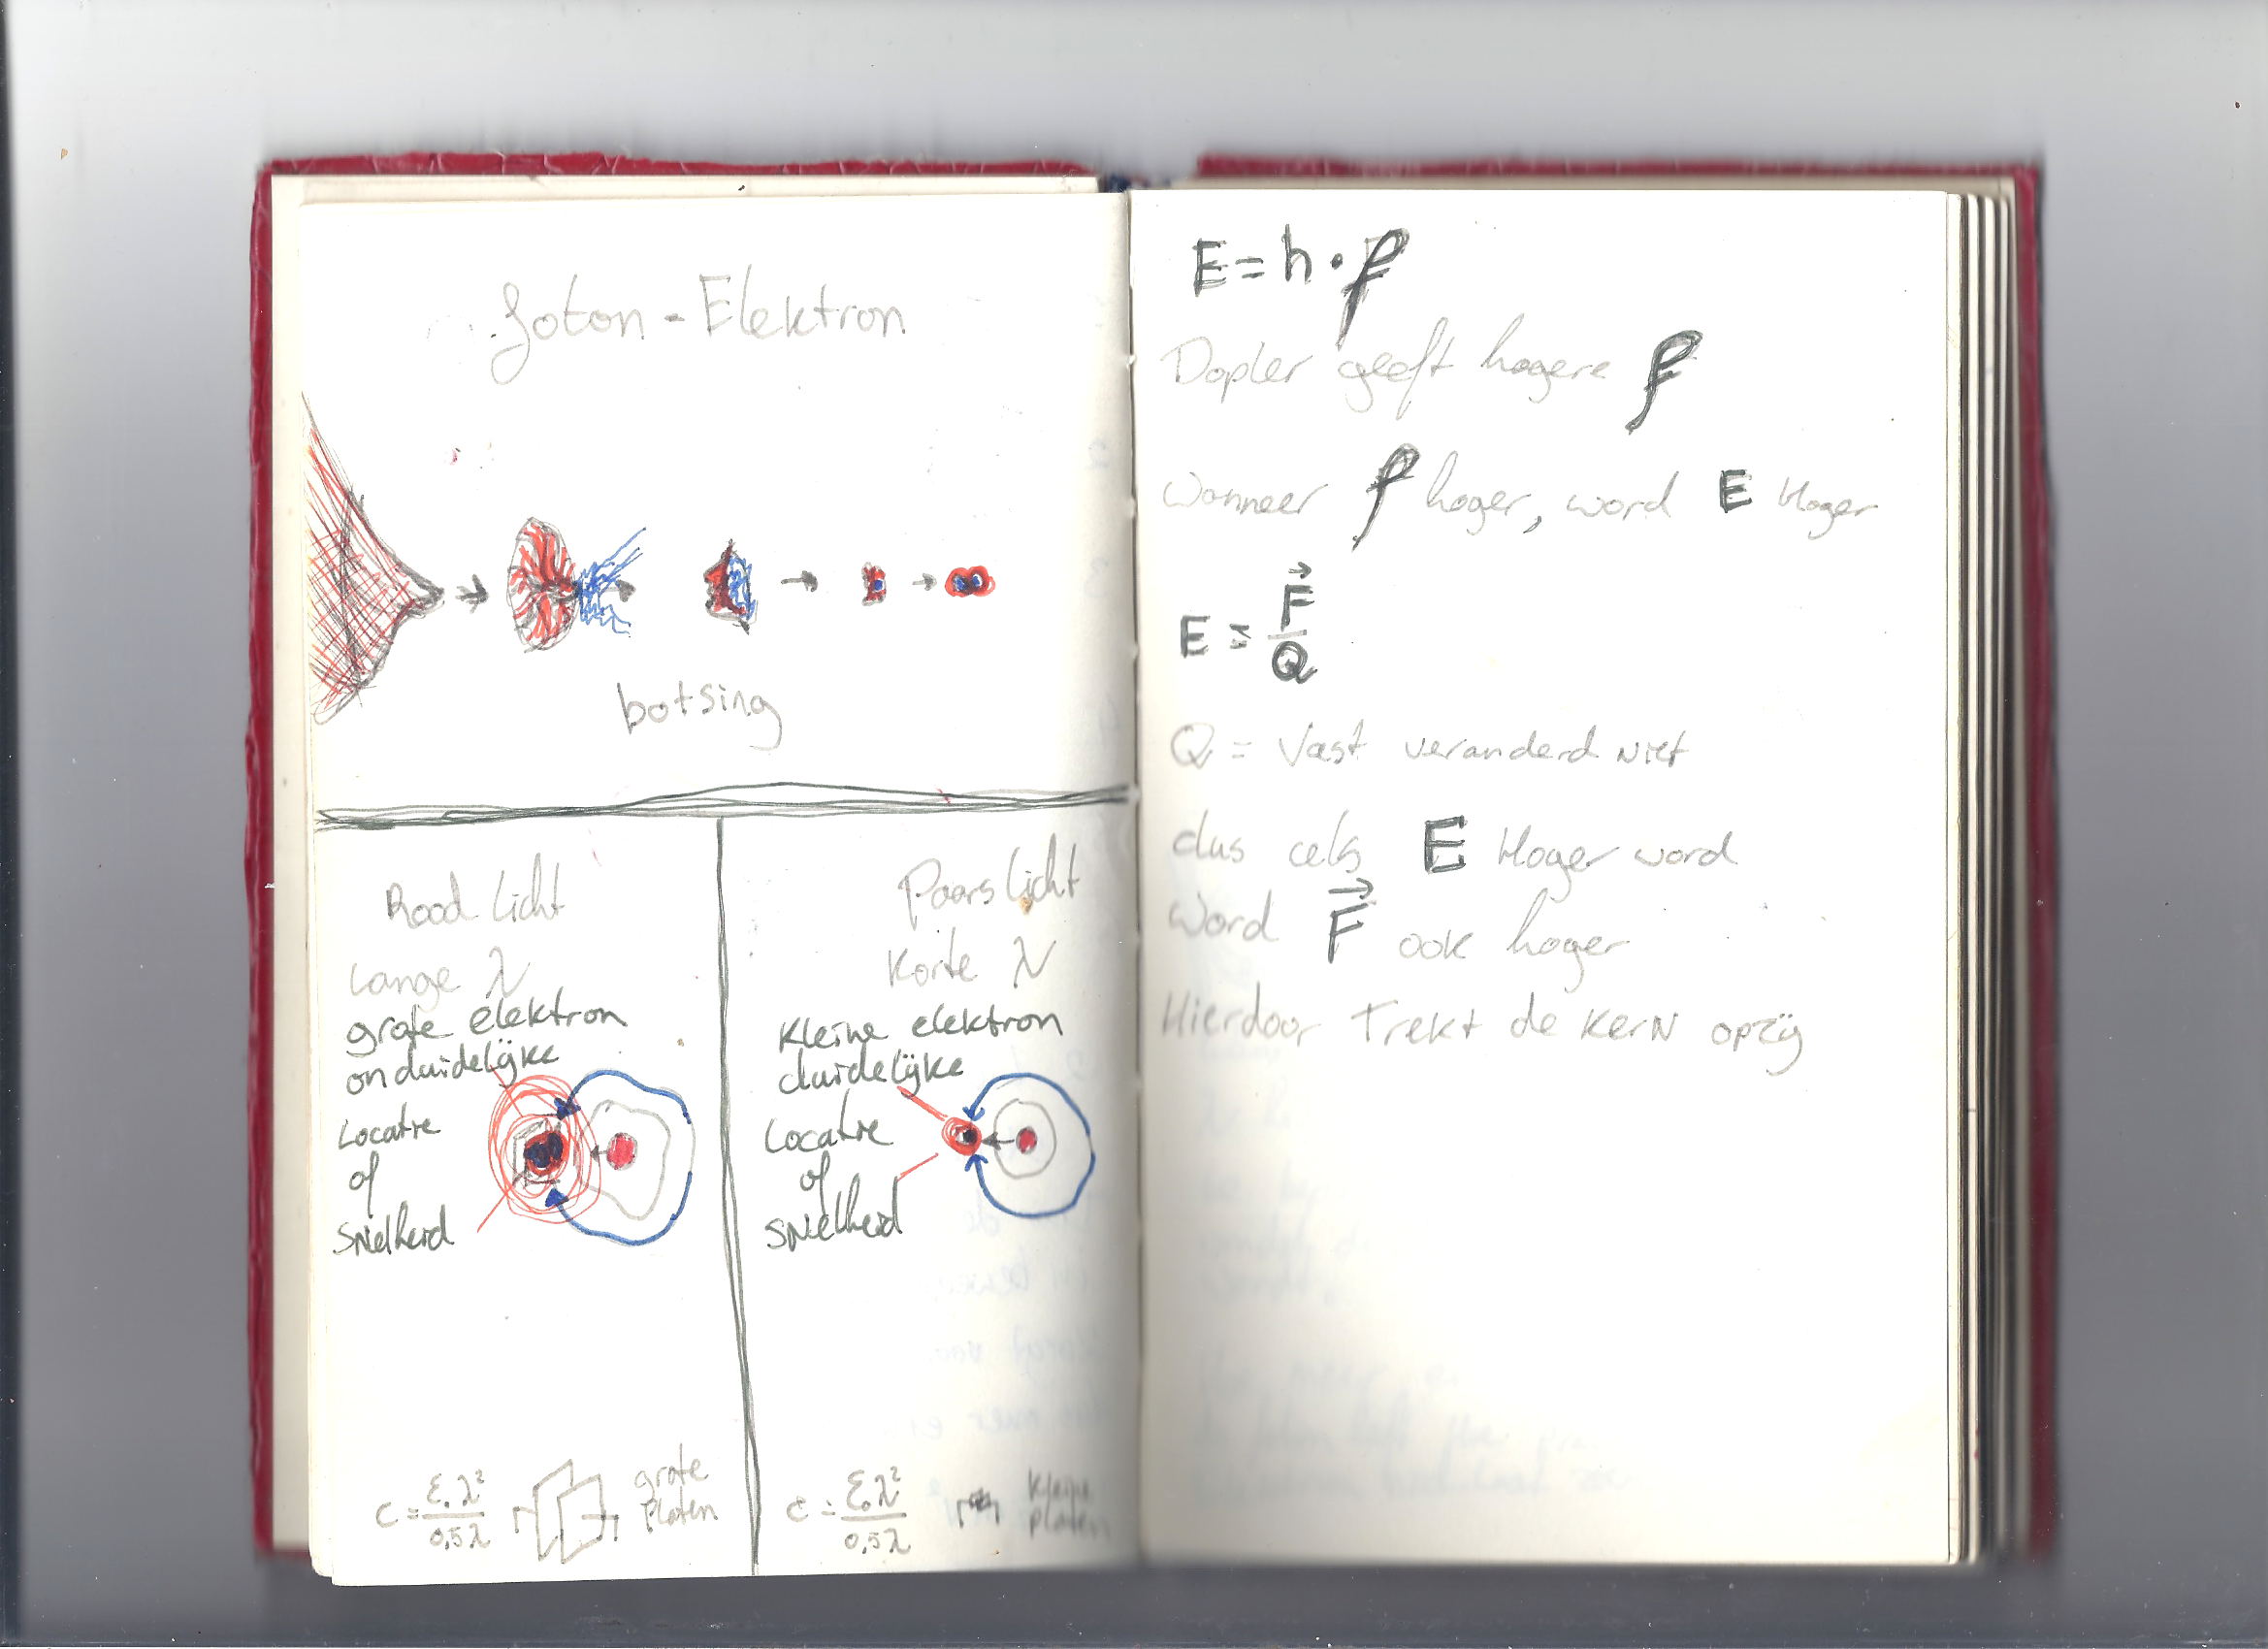 foton - Elektron
botsing
Rood licht
Lange λ
grote elektron
onduidelijke
Locatie
of
snelheid
C = ε₀λ²/0,5λ
grote
platen
Paars licht
Korte λ
Kleine elektron
duidelijke
Locatie
of
snelheid
C = ε₀λ²/0,5λ
Kleine
platen
E = h · f
Dopler geeft hogere f
Wanneer f hoger, word E Hoger
E = F⃗/Q
Q = Vast veranderd niet
dus als E Hoger word
word F⃗ ook hoger
Hierdoor Trekt de kern opzij